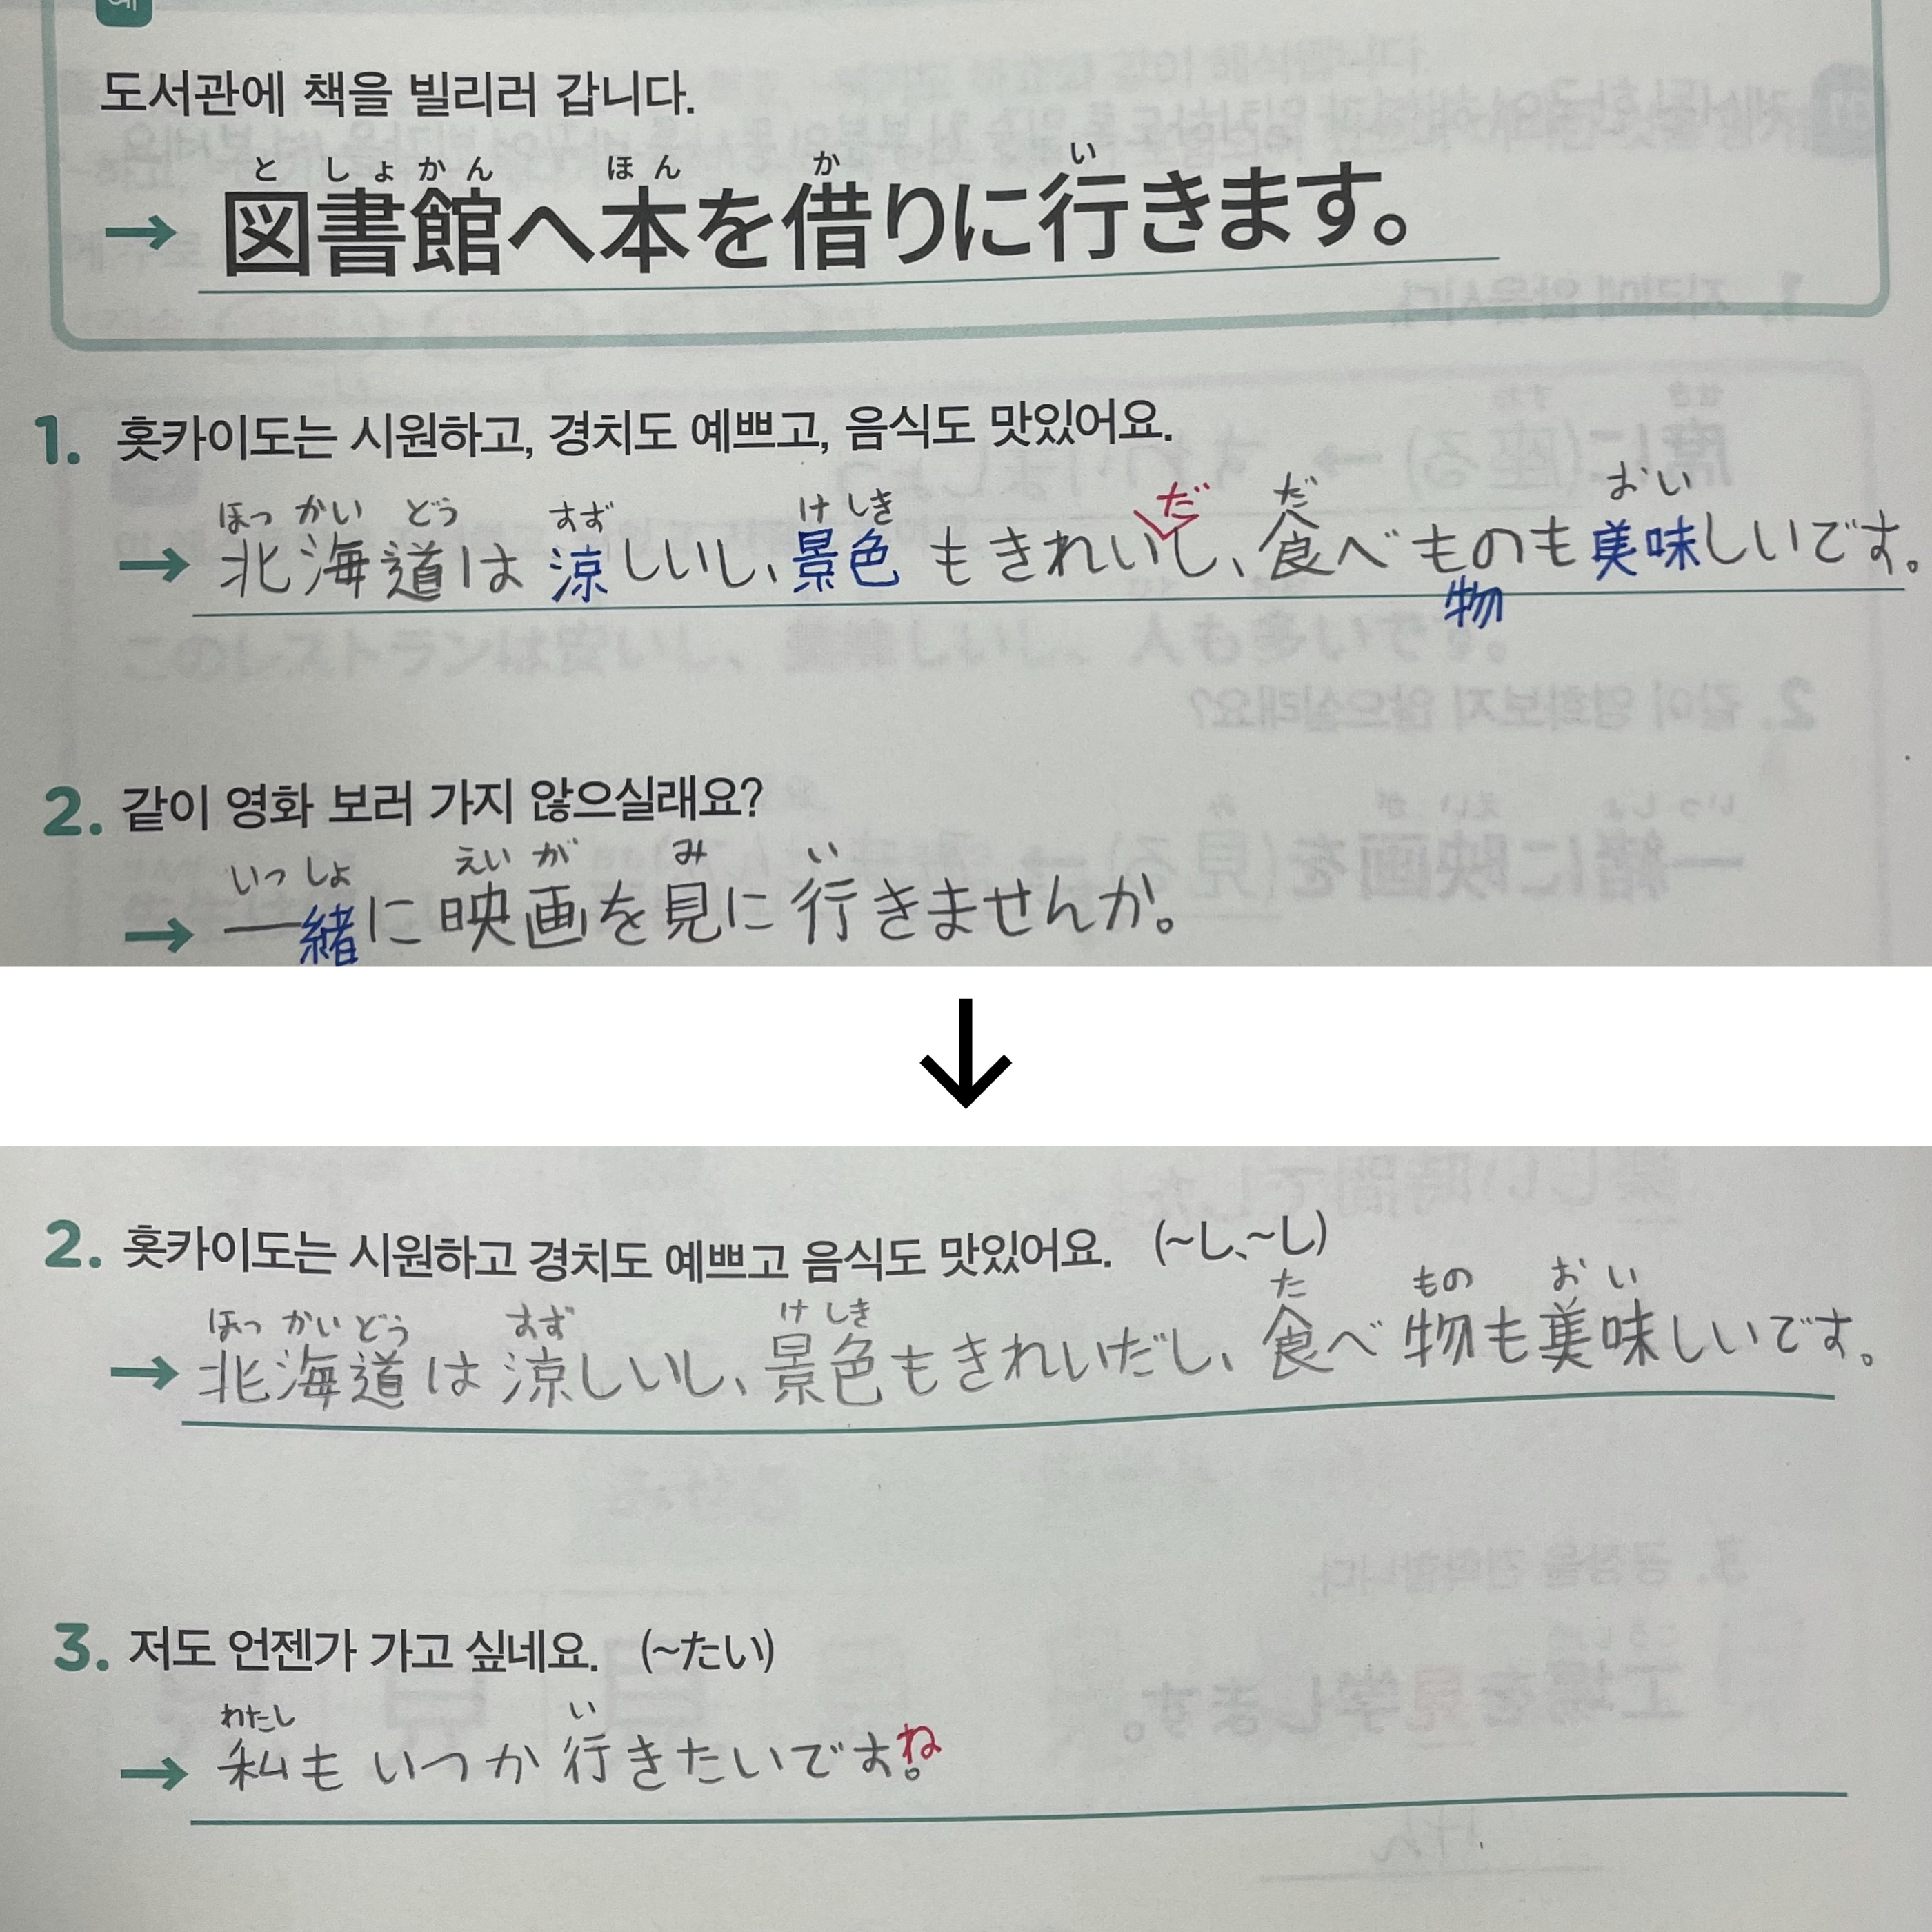 예
도서관에 책을 빌리러 갑니다.
と しょ かん ほん か い
→ 図書館へ本を借りに行きます。
1. 홋카이도는 시원하고, 경치도 예쁘고, 음식도 맛있어요.
ほっ かい どう すず け しき だ だ お い
→ 北海道は涼しいし、景色もきれいし、食べものも美味しいです。
物
2. 같이 영화 보러 가지 않으실래요?
いっ しょ えい が み い
→ 一緒に映画を見に行きませんか。
↓
2. 홋카이도는 시원하고 경치도 예쁘고 음식도 맛있어요. (~し、~し)
ほっ かい どう すず け しき た もの お い
→ 北海道は涼しいし、景色もきれいだし、食べ物も美味しいです。
3. 저도 언젠가 가고 싶네요. (~たい)
わたし い
→ 私もいつか行きたいですね。